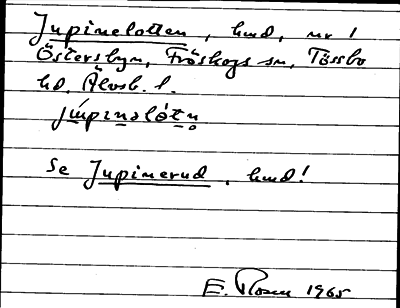 Jupinelotten, hmd, nr 1
Östersbyn, Fröskogs sn, Tössbo
hd, Älvsb. l.
júpınəlòtn̥
Se Jupinerud, hmd!
E. Rosen 1965